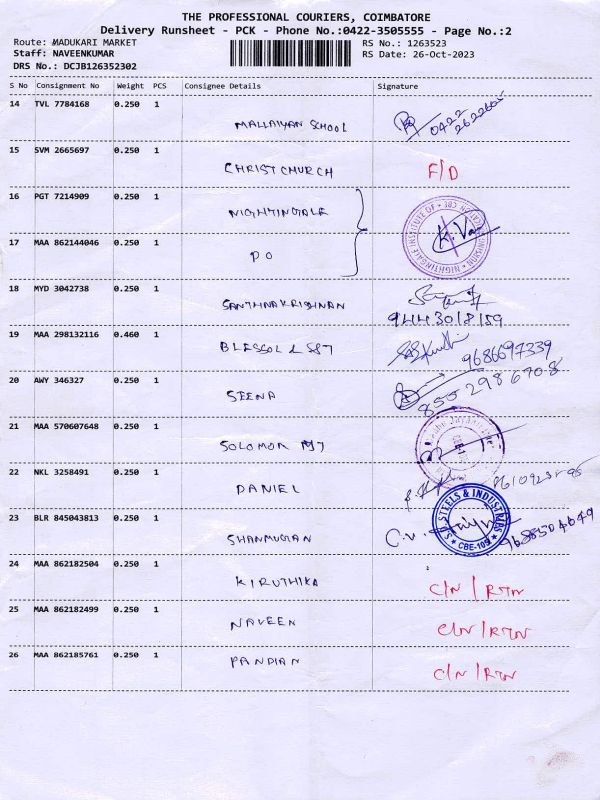 THE PROFESSIONAL COURIERS, COIMBATORE
Delivery Runsheet - PCK - Phone No.:0422-3505555 - Page No.:2
Route: MADUKARI MARKET RS No.: 1263523
Staff: NAVEENKUMAR RS Date: 26-Oct-2023
DRS No.: DCJB126352302
S No Consignment No Weight PCS Consignee Details Signature
14 TVL 7784168 0.250 1
MALLAIYAN SCHOOL 0422 2622605
15 SVM 2665697 0.250 1
CHRIST CHURCH F/D
16 PGT 7214909 0.250 1
NIGHTINGALE
NIGHTINGALE INSTITUTE OF CBE
17 MAA 862144046 0.250 1
PO
18 MYD 3042738 0.250 1
SANTHNAKRISHNAN
9443018159
19 MAA 298132116 0.460 1
BLESSOL & SST 9686697339
20 AWY 346327 0.250 1
SEENA 8502986708
21 MAA 570607648 0.250 1
SOLOMON
22 NKL 3258491 0.250 1
DANIEL
23 BLR 845043813 0.250 1
SHANMUGAN
STEELS & INDUSTRIES CBE-105
9688504649
24 MAA 862182504 0.250 1
KIRUTHIKA C/N / RTN
25 MAA 862182499 0.250 1
NAVEEN C/N / RTN
26 MAA 862185761 0.250 1
PANDIAN C/N / RTN